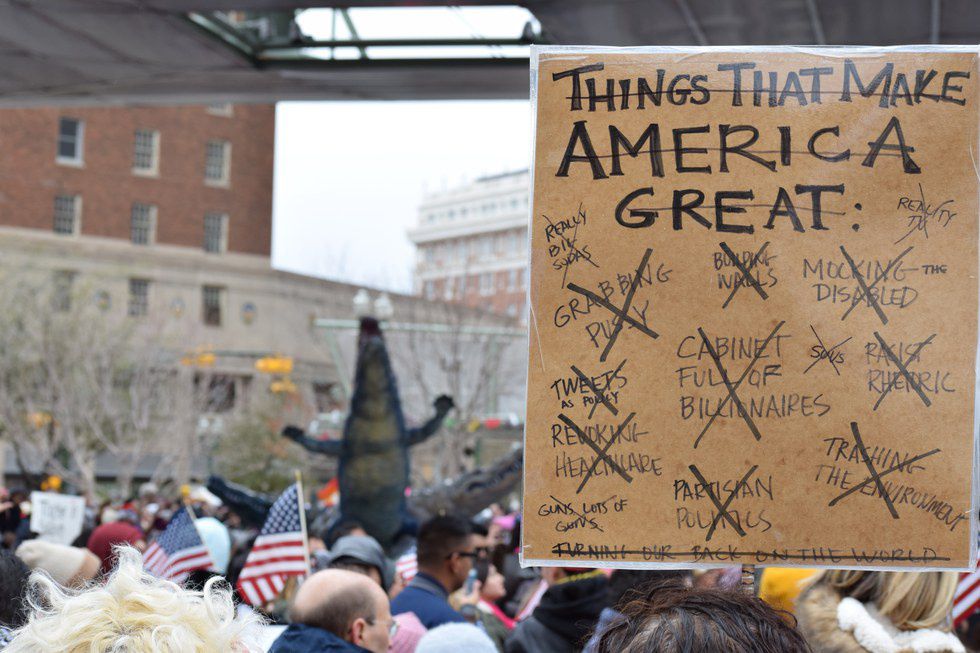 THINGS THAT MAKE
AMERICA
GREAT:
REALLY
BIG
SODAS
REALITY
TV
GRABBING
PUSSY
BUILDING
WALLS
MOCKING THE
DISABLED
TWEETS
AS POLICY
CABINET
FULL OF
BILLIONAIRES
RACIST
RHETORIC
REVOKING
HEALTHCARE
PARTISAN
POLITICS
TRASHING
THE ENVIRONMENT
GUNS, LOTS OF
GUNS.
TURNING OUR BACK ON THE WORLD